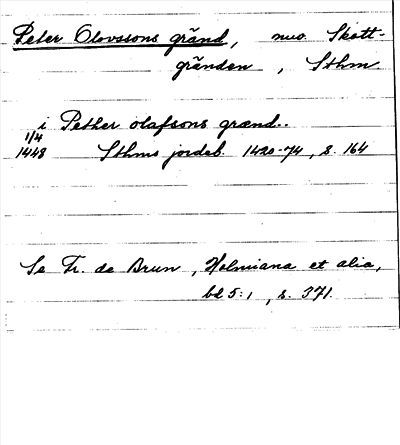 Peter Olovssons gränd, nuv. Skott-
gränden, Sthm
i Pether olafsons grænd..
1/4
1448 Sthms jordeb. 1420-74, s. 164
Se Fr. de Brun, Holmiana et alia,
bd 5:1, s. 371.